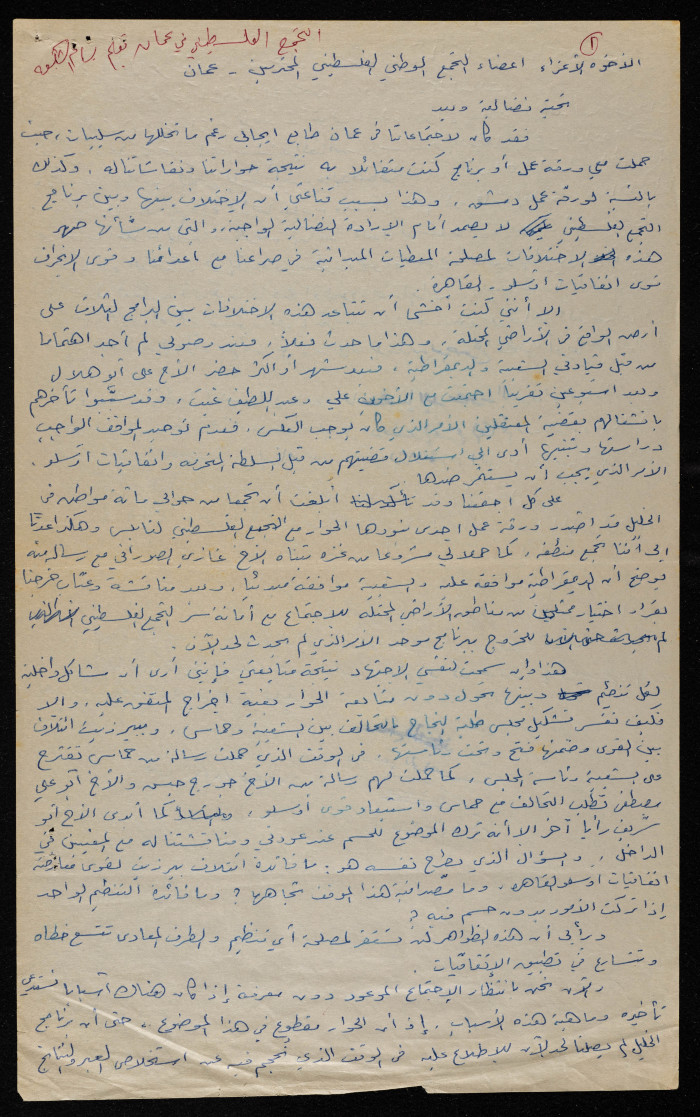 التجمع الفلسطيني في عمان بقلم بسام الشكعه
١
الأخوة الأعزاء اعضاء التجمع الوطني الفلسطيني المحترمين - عمان
تحية نضالية وبعد
فقد كان لاجتماعاتنا في عمان طابع ايجابي رغم ما تخللها من سلبيات، حيث
حملت معي ورقة عمل أو برنامج كنت متفائلا به نتيجة حواراتنا ونقاشاتنا له، وكذلك
بالنسبة لورقة عمل دمشق، وهذا بسبب قناعتي أن الاختلاف بينها وبين برنامج
التجمع الفلسطيني لا يصمد أمام الإرادة النضالية الواجبة، والتي من شأنها صهر
هذه الاختلافات لمصلحة المعطيات الميدانية في صراعنا مع أعدائنا وقوى الانحراف
قوى اتفاقيات أوسلو - القاهرة.
الا أنني كنت أخشى أن تتباعد هذه الاختلافات بين البرامج الثلاث على
أرض الواقع في الأراضي المحتلة، وهذا ما حدث فعلاً، فعند وصولي لم أجد اهتماما
من قبل قيادتي الشعبية والديمقراطية، فبعد شهر أو اكثر حضر الأخ علي أبو هلال
وبعد اسبوعين تقريبا اجتمعت مع الأخوين علي وعبد اللطيف غيث، وقد سببوا تأخرهم
بانشغالهم بقضية المعتقلين الأمر الذي كان يوجب العكس، فعدم توحيد المواقف الواجب
دراستها وتبنيها أدى الى استغلال قضيتهم من قبل السلطة المنحرفه واتفاقيات اوسلو.
الأمر الذي يجب أن يستثمر ضدها
على كل اتفقنا وقد أبلغت أن تجمعا من حوالي مائة مواطن في
الخليل قد اصدر ورقة عمل احدى بنودها الحوار مع التجمع الفلسطيني لنابلس وهكذا عدنا
الى أننا تجمع منطقه، كما حملا لي مشروعا من غزه تبناه الأخ غازي الصوراني مع رسالة منه
يوضح أن الديمقراطية موافقة عليه والشعبية موافقة مبدئيا، وبعد مناقشة وعتاب خرجنا
بقرار اختيار ممثلين من مناطق الأراضي المحتلة للاجتماع مع أمانة سر التجمع الفلسطيني
للخروج ببرنامج موحد الأمر الذي لم يحدث لحد الآن.
هذا وإن سمحت لنفسي الاجتهاد نتيجة متابعتي فإنني أرى أن مشاكل داخلية
لكل تنظيم وبينها تحول دون متابعة الحوار بغية اخراج المتفق عليه، والا
فكيف نفسر تشكيل مجلس طلبة النجاح بالتحالف بين الشعبية وحماس، وببيرزيت ائتلاف
بين القوى وضمنها فتح وتحت رئاستها، في الوقت الذي حملت رسالة من حماس تقترح
على الشعبية رئاسة المجلس، كما حملت لهم رسالة من الأخ جورج حبش والأخ أبو علي
مصطفى تطلب التحالف مع حماس واستبعاد قوى أوسلو، كما أبدى الأخ أبو
شريف رأيا آخر الا أنه ترك الموضوع للحسم عند عودتي ومناقشتنا له مع المعنيين في
الداخل، والسؤال الذي يطرح نفسه هو: ما فائدة ائتلاف بيرزيت لقوى معارضة
اتفاقيات اوسلو القاهره، وما مصداقية هذا الموقف تجاهها؟ وما فائدة التنظيم الواحد
إذا تركت الأمور بدون حسم فيه؟
ورأيي أن هذه الظواهر لن تستقر لمصلحة أي تنظيم والطرف المعادي تتسع خطاه
وتتسارع في تطبيق الاتفاقيات.
والآن نحن بانتظار الاجتماع الموعود دون معرفة إذا كان هناك أسبابا تستدعي
تأخيره وما هية هذه الأسباب، إذ أن الحوار مقطوع في هذا الموضوع، حتى أن برنامج
الخليل لم يصلنا لحد الآن للاطلاع عليه في الوقت الذي نحجم فيه عن استخلاص العبر والنتائج